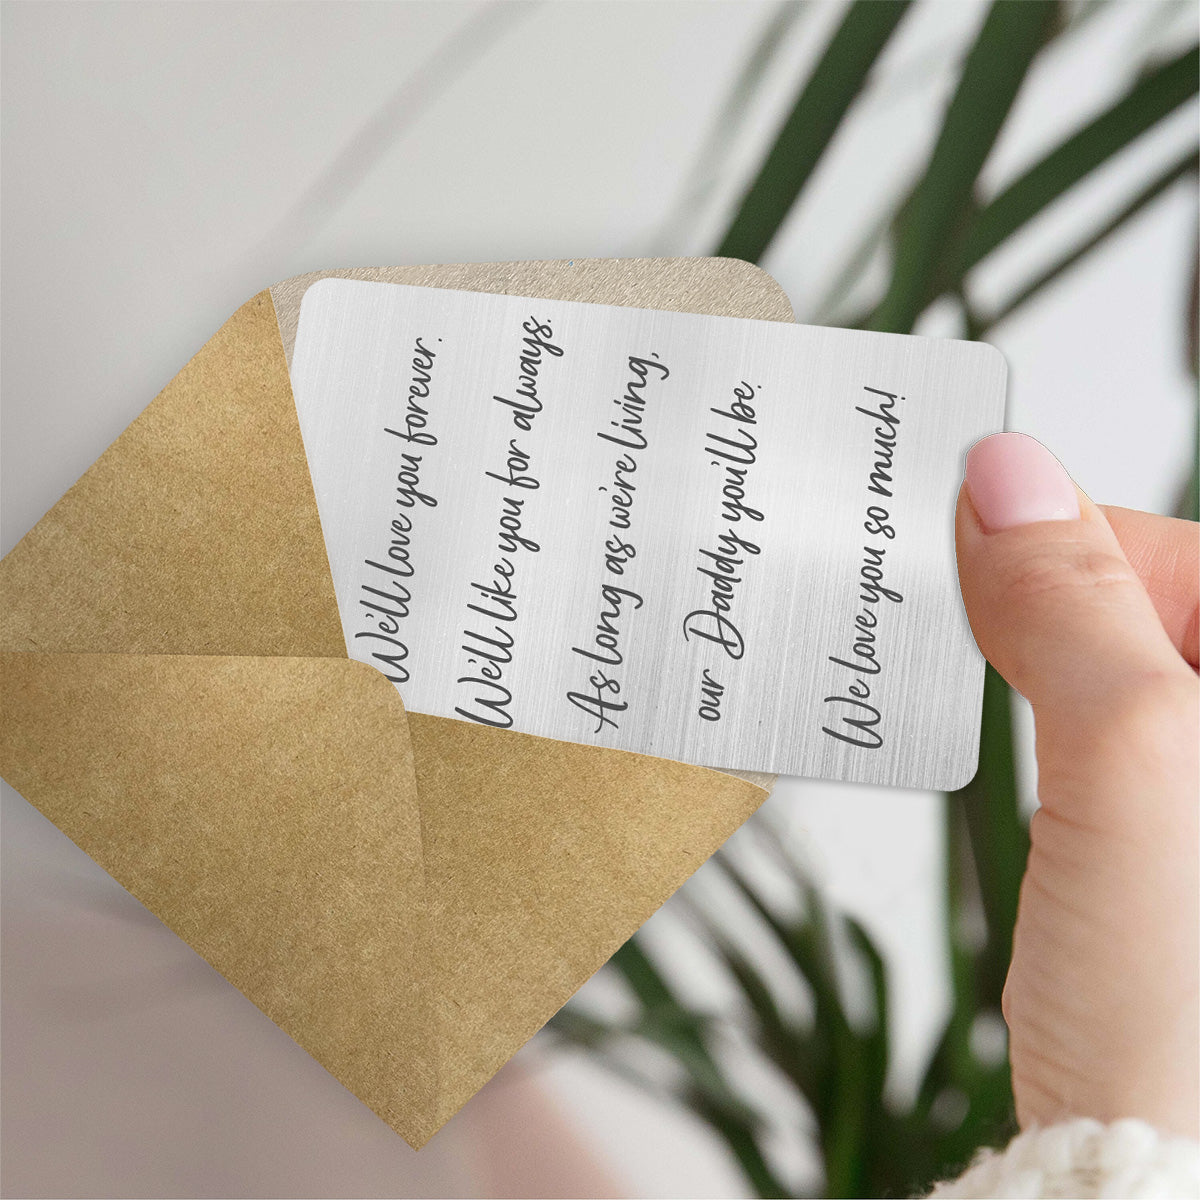 We'll love you forever.
We'll like you for always.
As long as we're living,
our Daddy you'll be.
We love you so much!